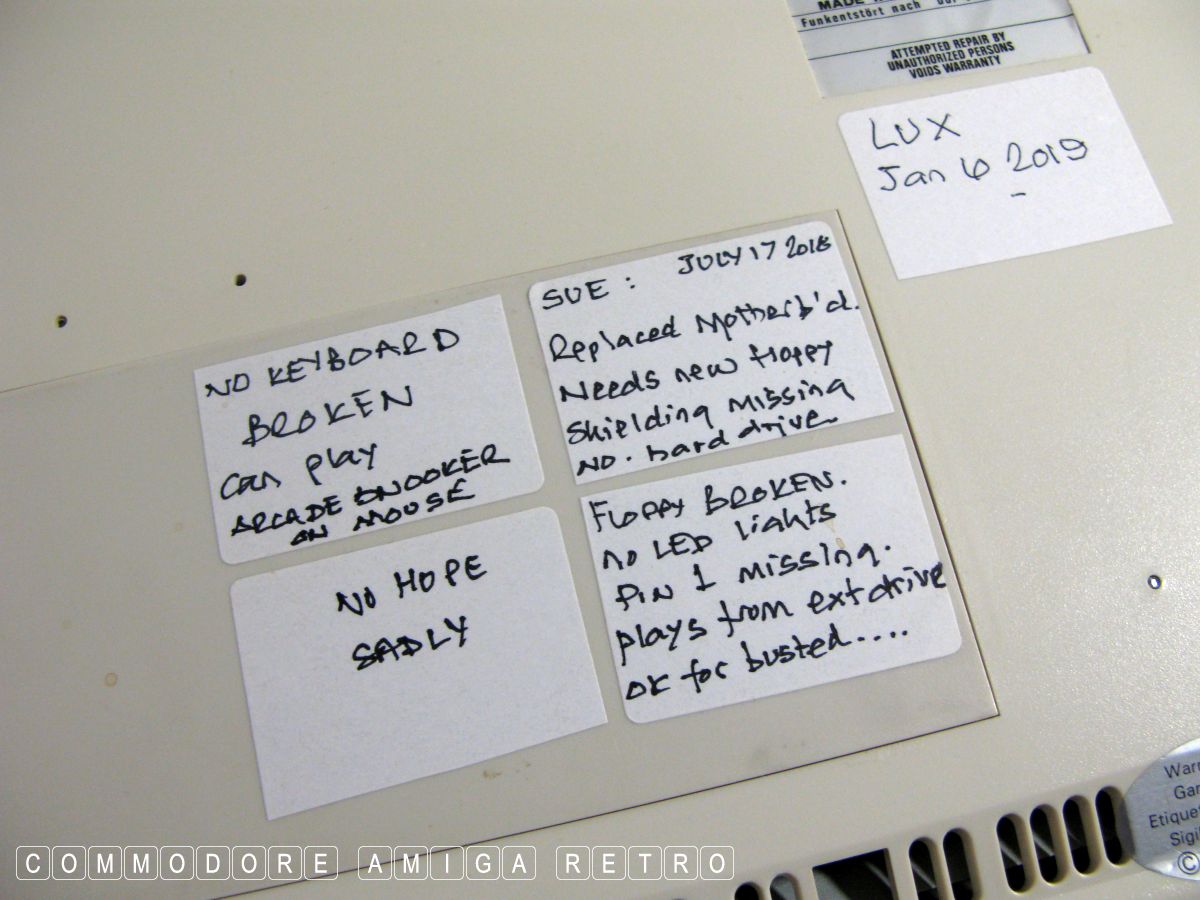 MADE
Funkentstört nach
ATTEMPTED REPAIR BY
UNAUTHORIZED PERSONS
VOIDS WARRANTY
LUX
Jan 6 2019
SUE : JULY 17 2018
Replaced Motherb'd.
Needs new floppy
Shielding missing
NO. hard drive
NO KEYBOARD
BROKEN
Can play
ARCADE SNOOKER
ON MOUSE
FLOPPY BROKEN.
no LED lights
Pin 1 missing.
plays from ext drive
OK for busted....
NO HOPE
SADLY
Warr
Gar
Etique
Sigi
©
COMMODORE AMIGA RETRO